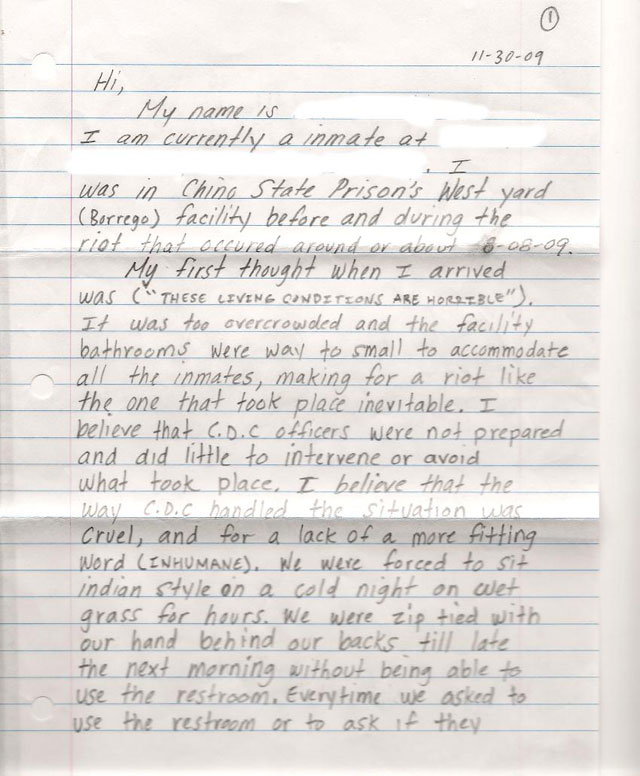 1
11-30-09
Hi,
My name is
I am currently a inmate at
. I
was in Chino State Prison's West yard
(Borrego) facility before and during the
riot that occured around or about 8-08-09.
My first thought when I arrived
was ("THESE LIVING CONDITIONS ARE HORRIBLE").
It was too overcrowded and the facility
bathrooms were way to small to accommodate
all the inmates, making for a riot like
the one that took place inevitable. I
believe that C.D.C officers were not prepared
and did little to intervene or avoid
what took place. I believe that the
way C.D.C handled the situation was
Cruel, and for a lack of a more fitting
word (INHUMANE). We were forced to sit
indian style on a cold night on wet
grass for hours. We were zip tied with
our hand behind our backs till late
the next morning without being able to
use the restroom. Everytime we asked to
use the restroom or to ask if they